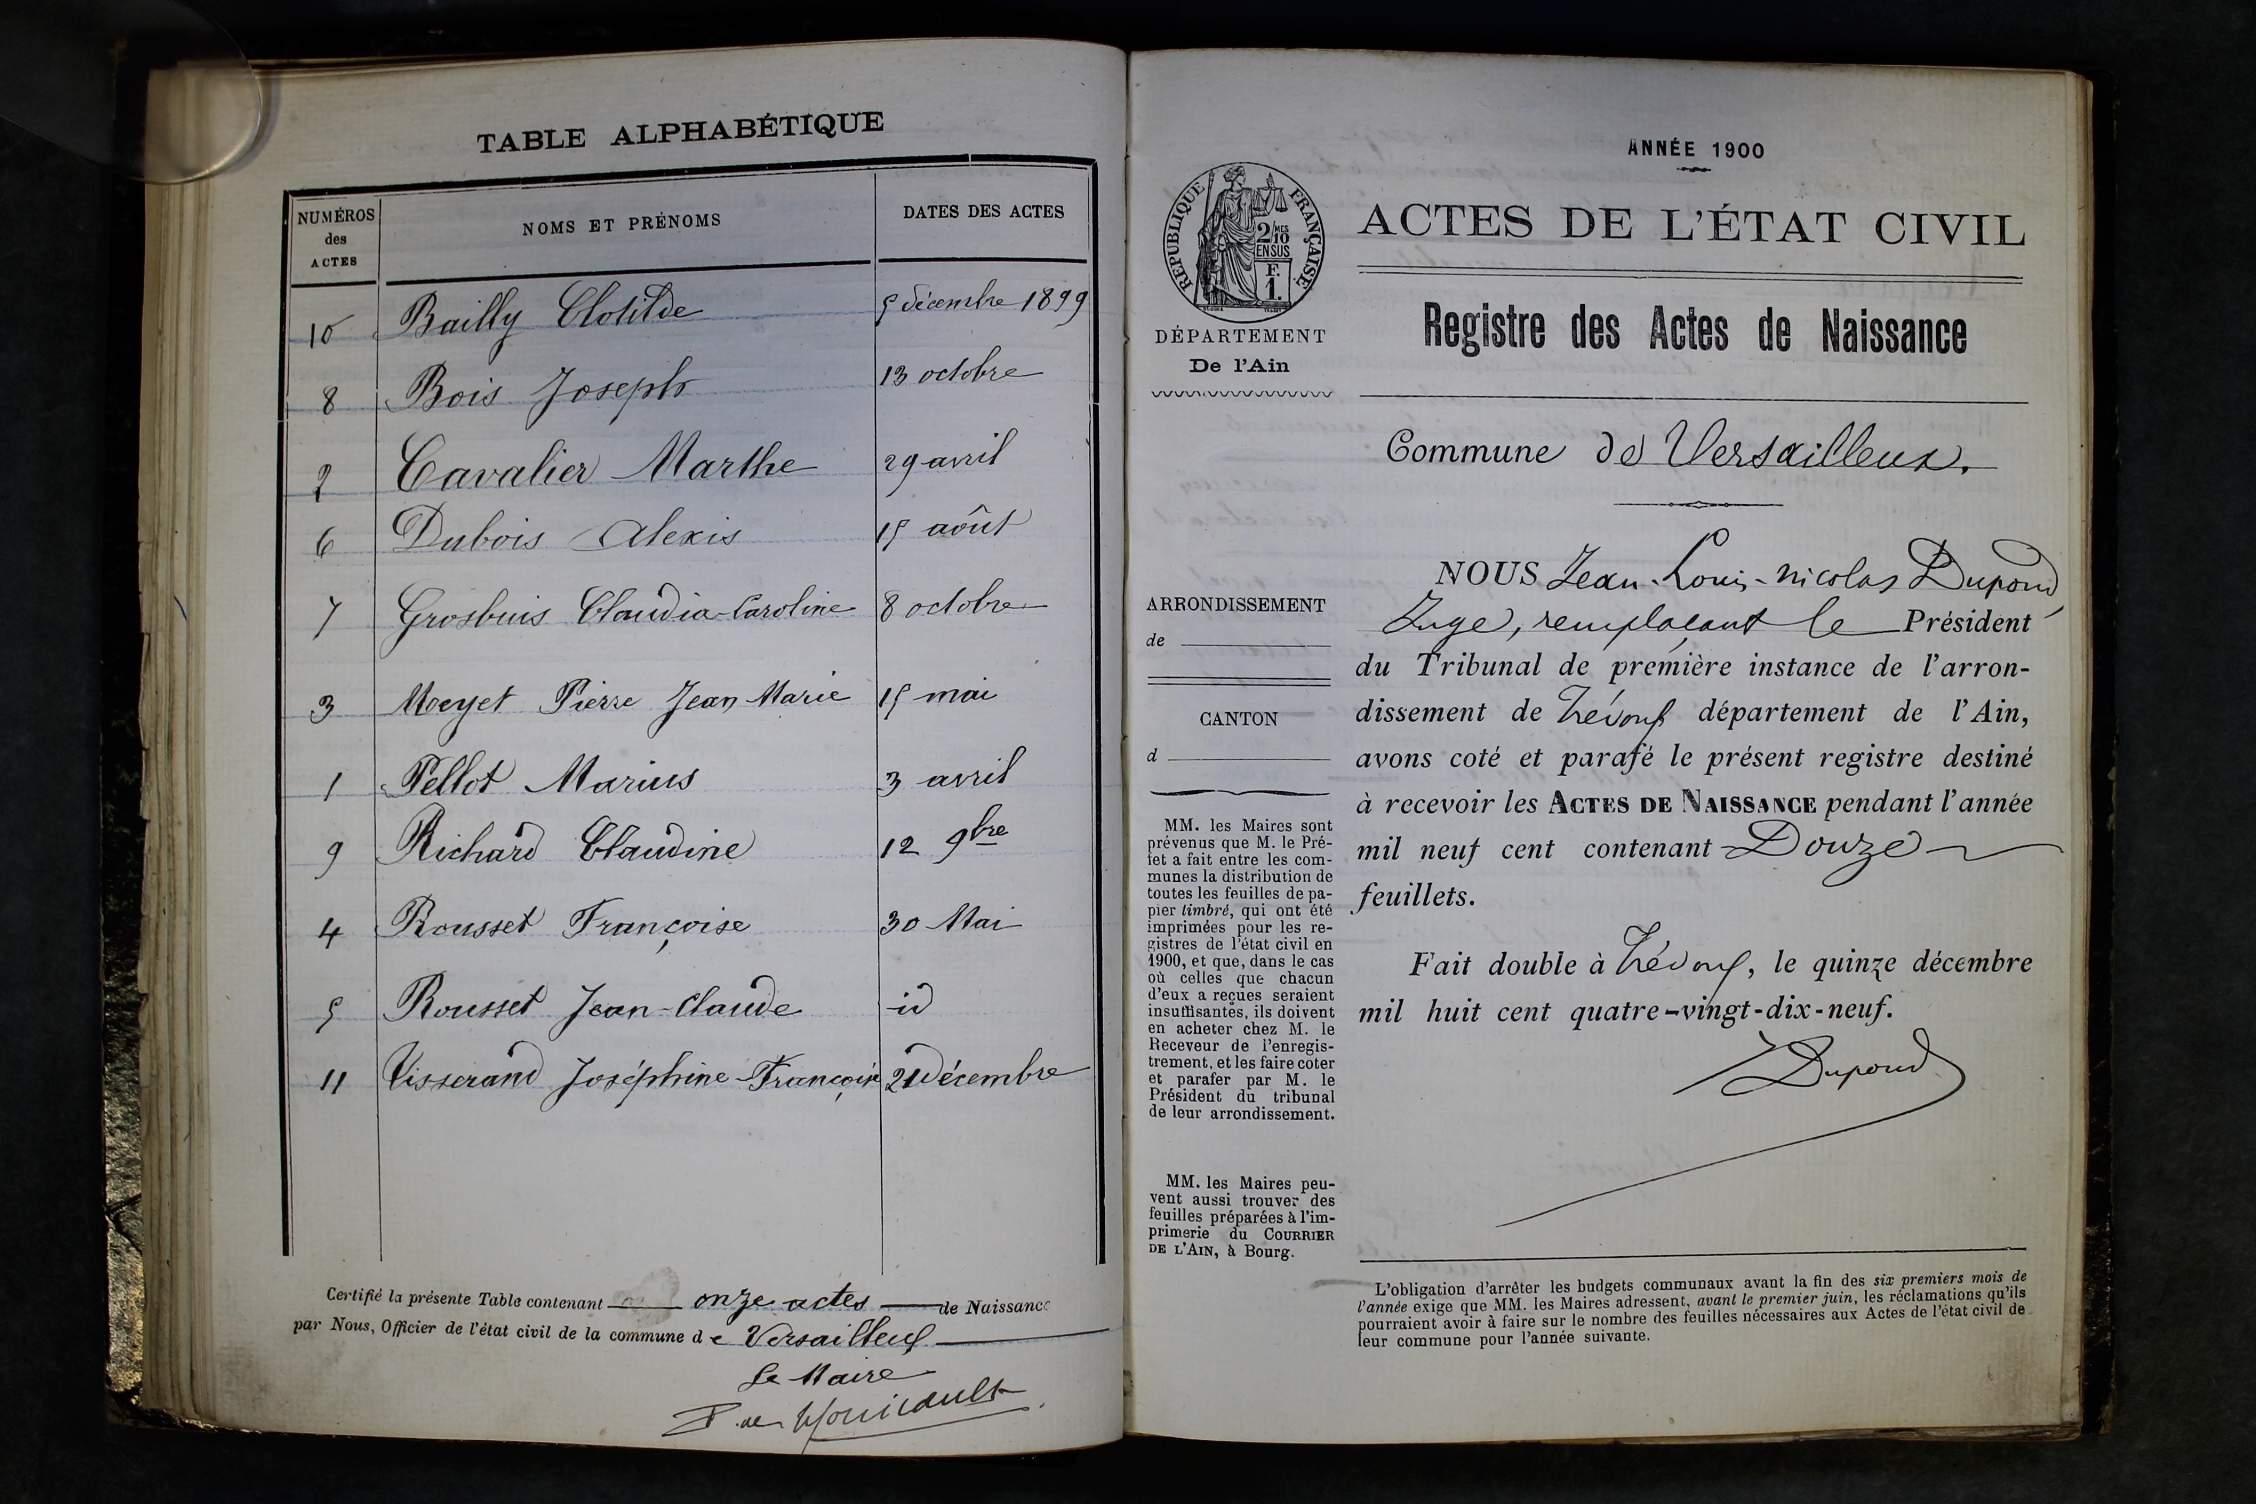 TABLE ALPHABÉTIQUE
NUMÉROS des ACTES NOMS ET PRÉNOMS DATES DES ACTES
10 Bailly Clotilde 5 décembre 1899
8 Bois Joseph 13 octobre
2 Cavalier Marthe 29 avril
6 Dubois Alexis 15 août
7 Grosbuis Claudia-Caroline 8 octobre
3 Moeyet Pierre Jean Marie 15 mai
1 Pellot Marius 3 avril
9 Richard Claudine 12 9bre
4 Rousset Françoise 30 Mai
5 Rousset Jean-Claude id
11 Tisserand Joséphine-Françoise 21 décembre
Certifié la présente Table contenant onze actes de Naissance
par Nous, Officier de l'état civil de la commune de Versailleux
Le Maire
ANNÉE 1900
RÉPUBLIQUE FRANÇAISE
2/10MES
EN SUS
F.
1.
DÉPARTEMENT
De l'Ain
ARRONDISSEMENT
de
CANTON
d
MM. les Maires sont
prévenus que M. le Pré-
fet a fait entre les com-
munes la distribution de
toutes les feuilles de pa-
pier timbré, qui ont été
imprimées pour les re-
gistres de l'état civil en
1900, et que, dans le cas
où celles que chacun
d'eux a reçues seraient
insuffisantes, ils doivent
en acheter chez M. le
Receveur de l'enregis-
trement, et les faire coter
et parafer par M. le
Président du tribunal
de leur arrondissement.
MM. les Maires peu-
vent aussi trouver des
feuilles préparées à l'im-
primerie du COURRIER
DE L'AIN, à Bourg.
ACTES DE L'ÉTAT CIVIL
Registre des Actes de Naissance
Commune de Versailleux.
NOUS Jean-Louis-Nicolas Dupond,
Juge, remplaçant le Président
du Tribunal de première instance de l'arron-
dissement de Trévoux département de l'Ain,
avons coté et parafé le présent registre destiné
à recevoir les ACTES DE NAISSANCE pendant l'année
mil neuf cent contenant Douze
feuillets.
Fait double à Trévoux, le quinze décembre
mil huit cent quatre-vingt-dix-neuf.
Dupond
L'obligation d'arrêter les budgets communaux avant la fin des six premiers mois de
l'année exige que MM. les Maires adressent, avant le premier juin, les réclamations qu'ils
pourraient avoir à faire sur le nombre des feuilles nécessaires aux Actes de l'état civil de
leur commune pour l'année suivante.